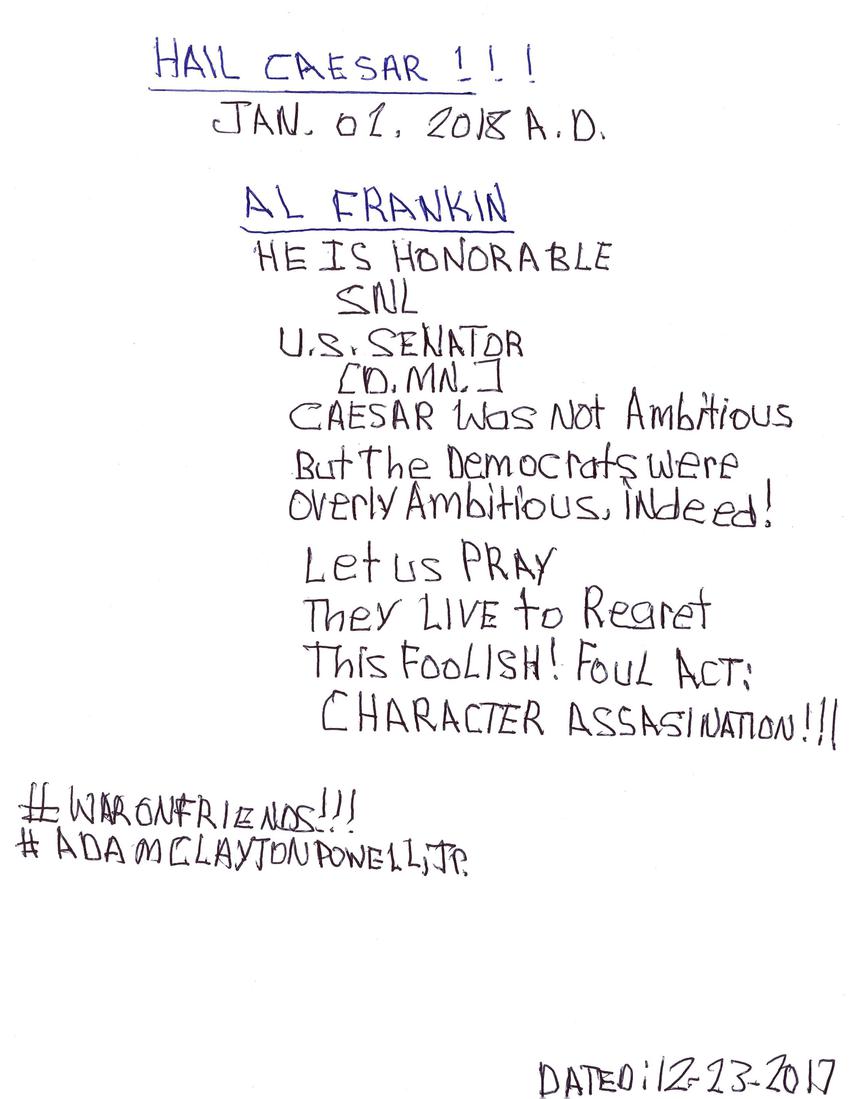 HAIL CAESAR !!!
JAN. 01, 2018 A.D.
AL FRANKIN
HE IS HONORABLE
SNL
U.S. SENATOR
[D. MN.]
CAESAR Was Not Ambitious
But The Democrats were
Overly Ambitious, indeed!
Let us PRAY
They LIVE to Regret
This FooLISH! FOUL ACT:
CHARACTER ASSASINATION!!!
#WARONFRIENDS!!!
#ADAMCLAYTONPOWELL,JR.
DATED: 12-23-2017